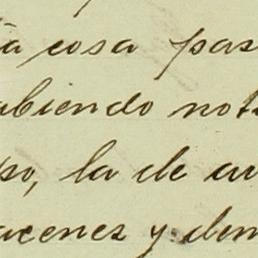 a cosa pas
biendo not
so, la de au
acenes y dem